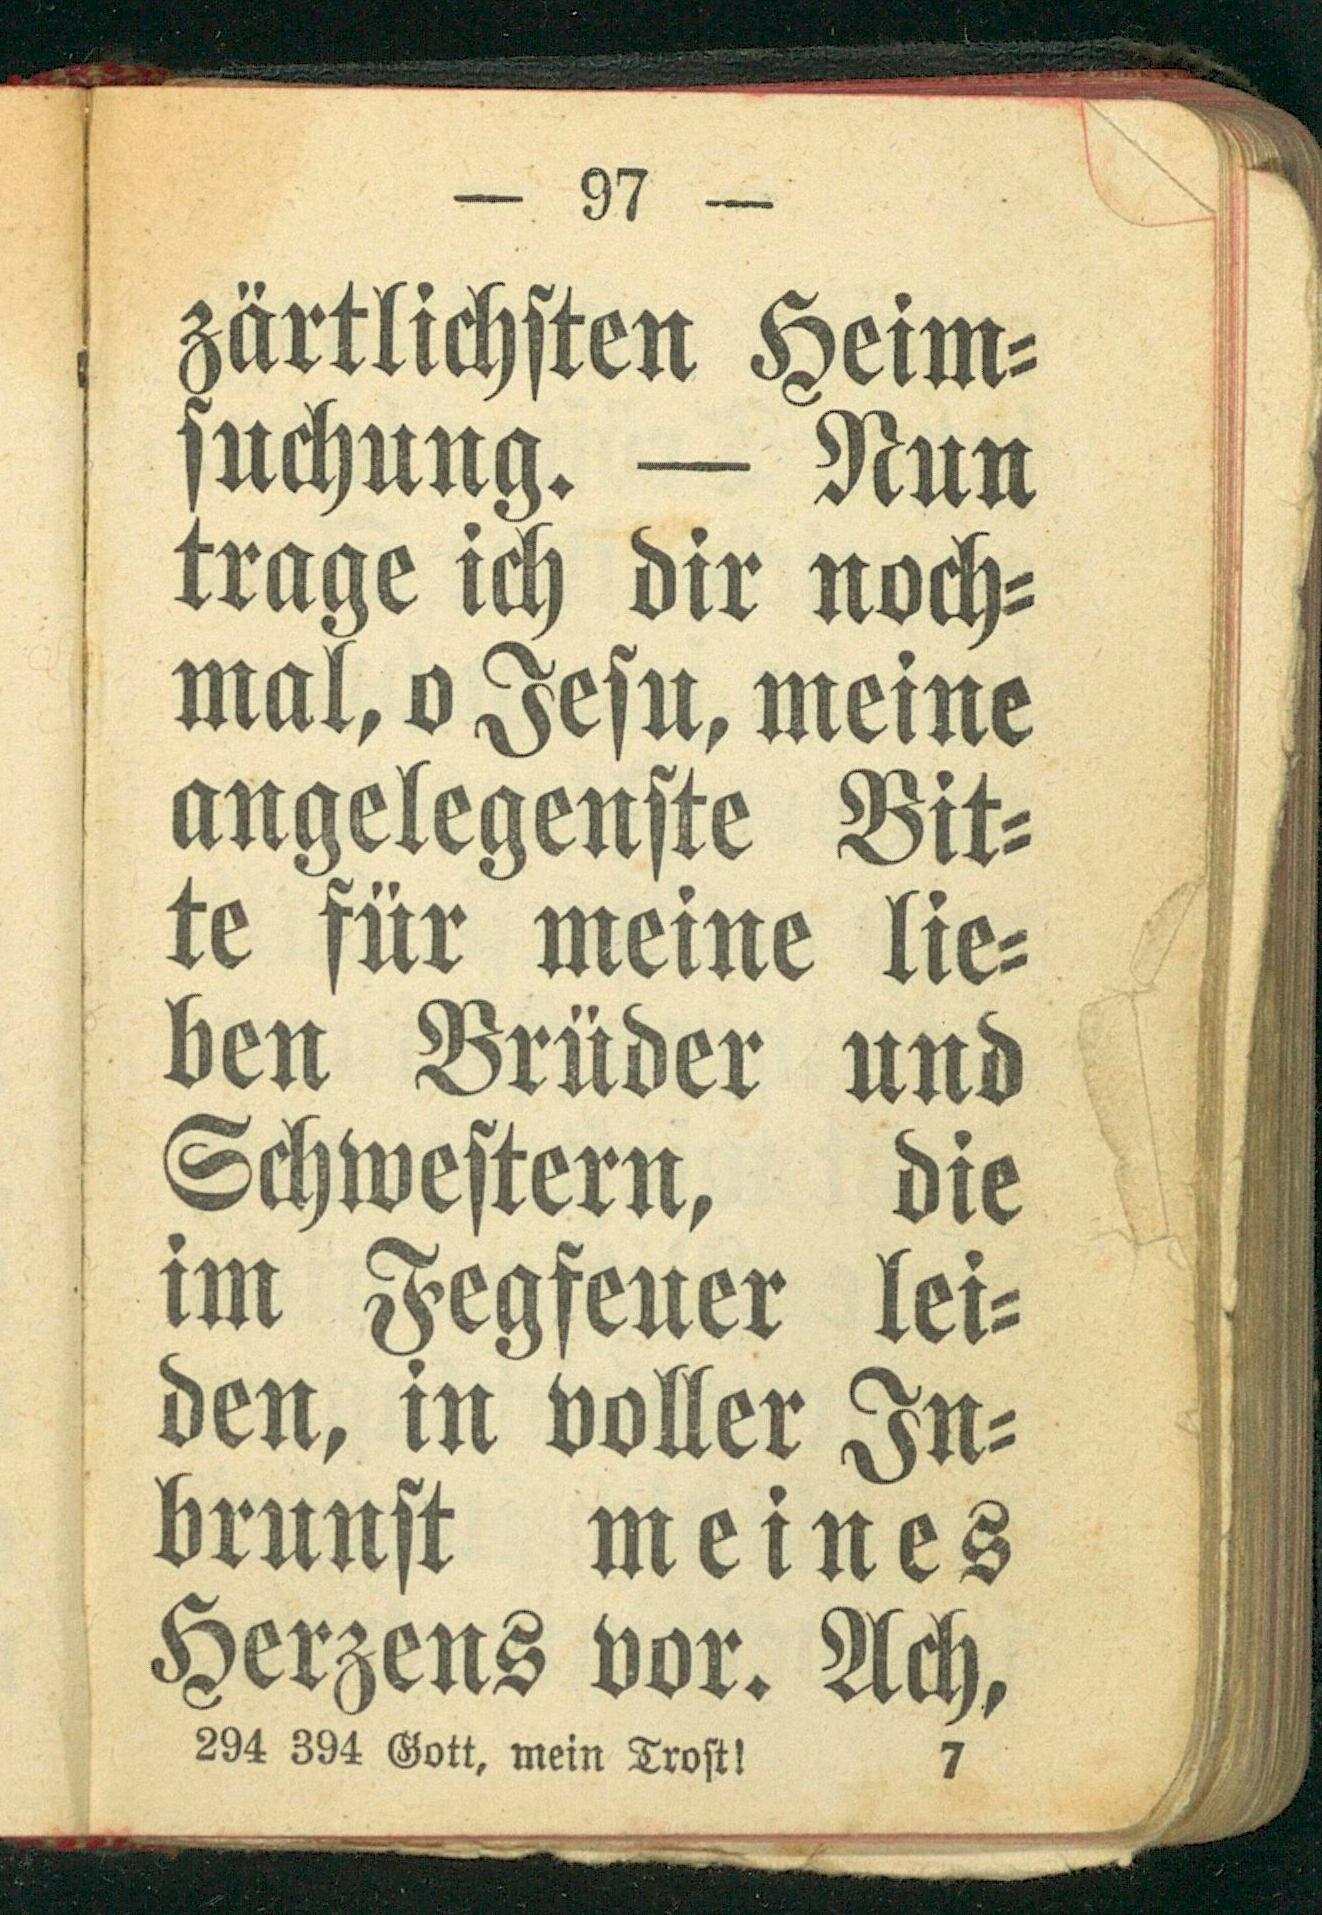 — 97 —
zärtlichsten Heim=
suchung. — Nun
trage ich dir noch=
mal, o Jesu, meine
angelegenste Bit=
te für meine lie=
ben Brüder und
Schwestern, die
im Fegfeuer lei=
den, in voller In=
brunst meines
Herzens vor. Ach,
294 394 Gott, mein Trost! 7